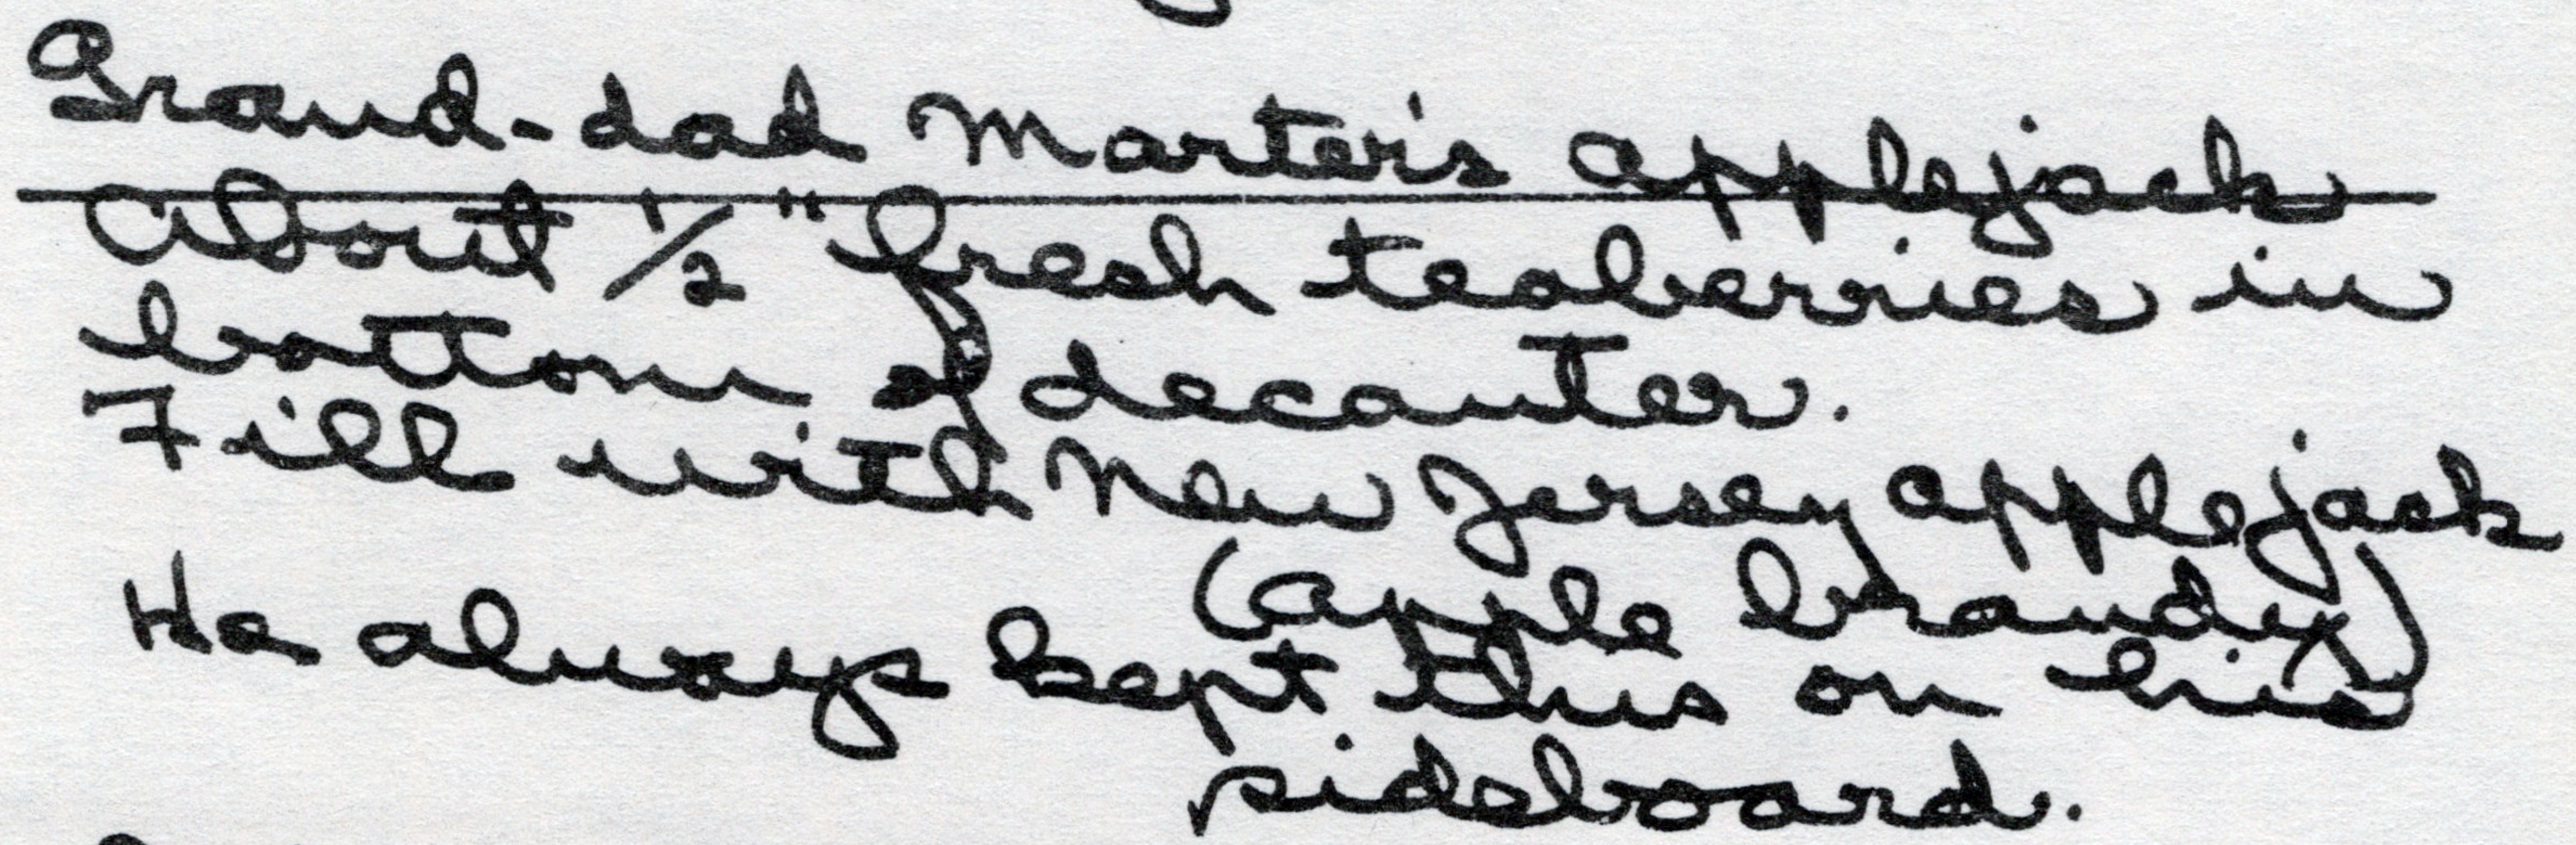 Grand-dad Marter's applejack
About 1/2" fresh teaberries in
bottom of decanter.
Fill with New Jersey applejack
(apple brandy)
He always kept this on his
sideboard.